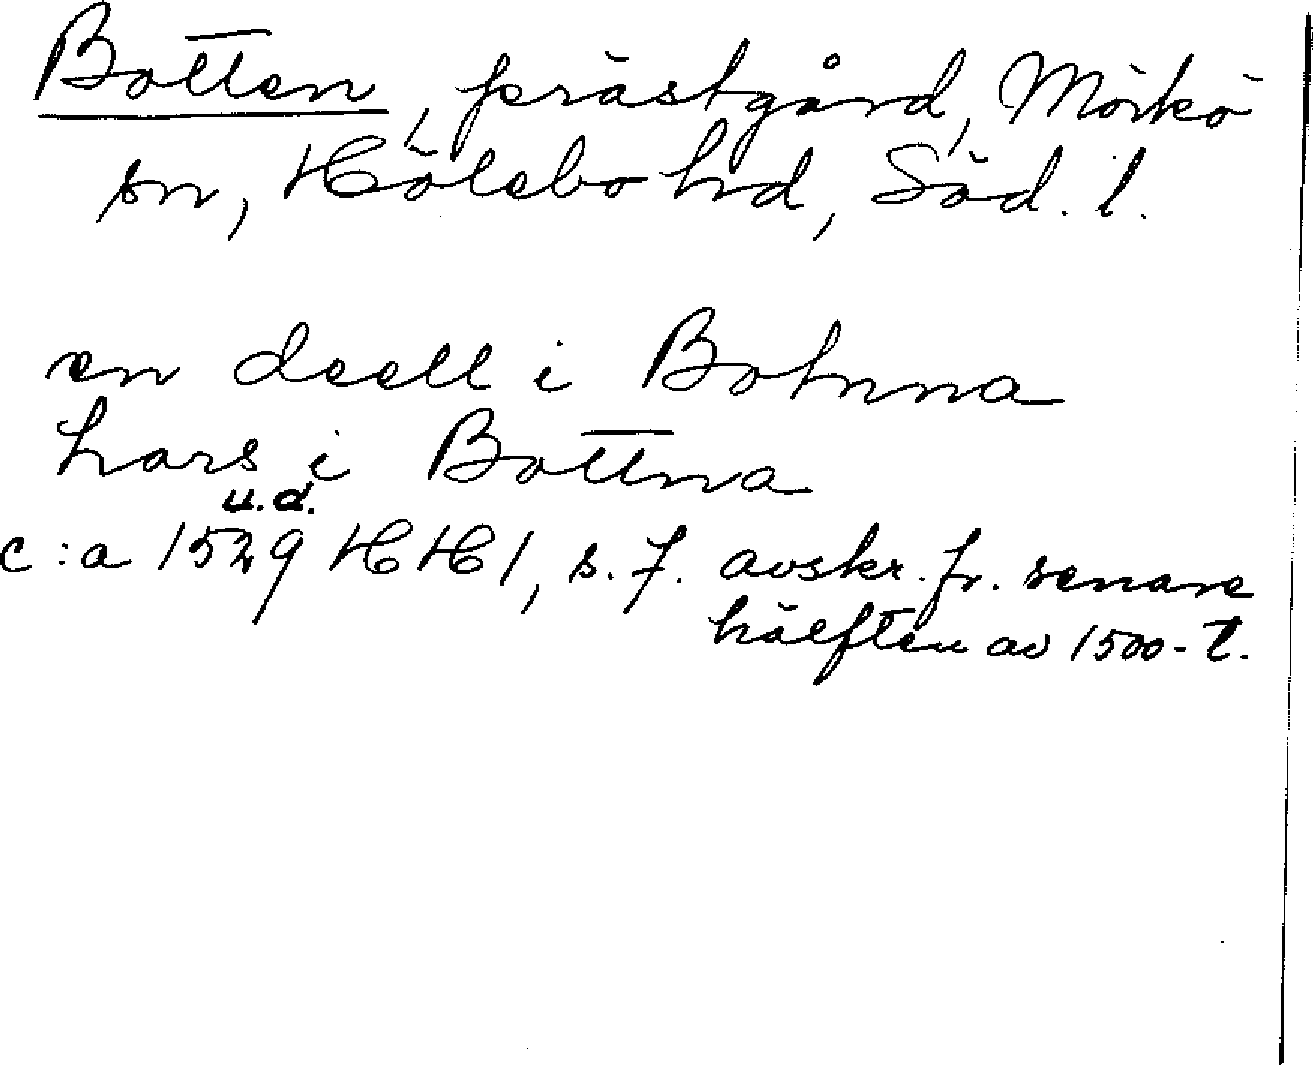 Botten, prästgård, Mörkö
sn, Hölebo hd, Söd. l.
en deell i Botnna
hars i Bottna
u.d.
c:a 1529 HH1, s. 7. avskr. fr. senare
hälften av 1500-t.